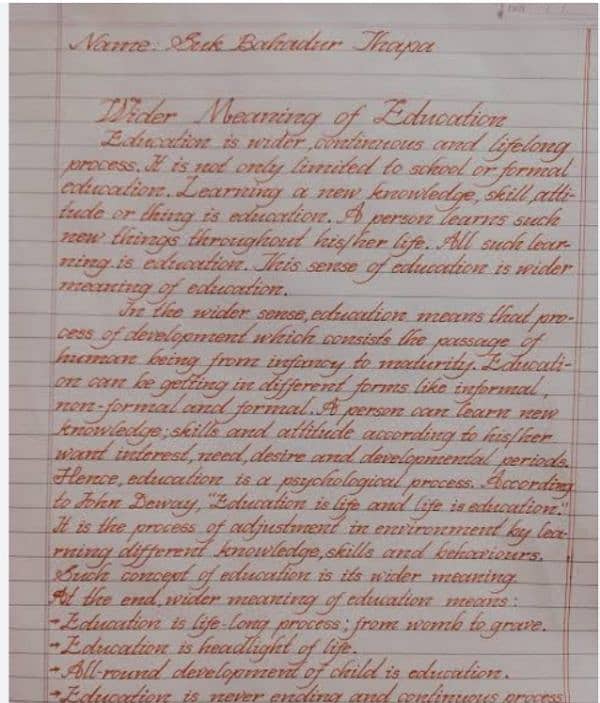 Name: Suk Bahadur Thapa
Wider Meaning of Education
Education is wider, continuous and lifelong
process. It is not only limited to school or formal
education. Learning a new knowledge, skill, atti-
tude or thing is education. A person learns such
new things throughout his/her life. All such lear-
ning is education. This sense of education is wider
meaning of education.
In the wider sense, education means that pro-
cess of development which consists the passage of
human being from infancy to maturity. Educati-
on can be getting in different forms like informal,
non-formal and formal. A person can learn new
knowledge; skills and attitude according to his/her
want interest, need, desire and developmental periods.
Hence, education is a psychological process. According
to John Deway, "Education is life and life is education."
It is the process of adjustment in environment by lea-
rning different knowledge, skills and behaviours.
Such concept of education is its wider meaning.
At the end, wider meaning of education means:
→Education is life-long process; from womb to grave.
→Education is headlight of life.
→All-round development of child is education.
→Education is never ending and continuous process